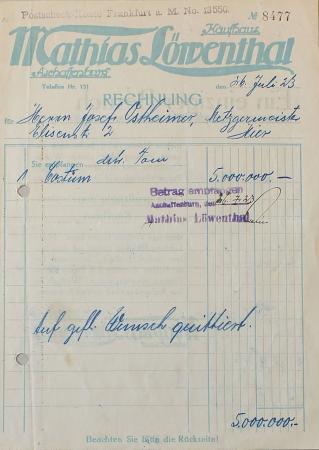 Postscheck-Konto Frankfurt a. M. No. 13550.
№ 8477
Kaufhaus
Mathias Löwenthal
Aschaffenburg
Telefon Nr. 151
den 26. Juli 23
RECHNUNG
für Herrn Josef Ostheimer, Metzgermeister
Elisenstr 2 Hier
Sie empfangen
1 Costüm 5.000.000.-
Betrag empfangen
Aschaffenburg, den 26.7.23
Mathias Löwenthal
Auf gefl. Wunsch quittiert.
5.000.000.-
Beachten Sie bitte die Rückseite!